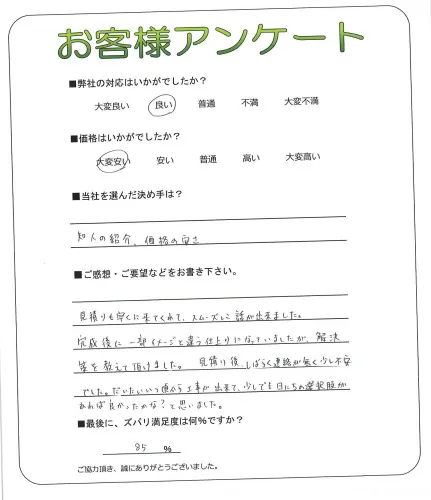 お客様アンケート
■弊社の対応はいかがでしたか？
大変良い 良い 普通 不満 大変不満
■価格はいかがでしたか？
大変安い 安い 普通 高い 大変高い
■当社を選んだ決め手は？
知人の紹介、価格の安さ
■ご感想・ご要望などをお書き下さい。
見積りも早くに来てくれて、スムーズに話が出来ました。
完成後に一部イメージと違う仕上りになっていましたが、解決
策を教えて頂けました。 見積り後、しばらく連絡が無く少し不安
でした。だいたいいつ頃から工事が出来て、少しでも日にちの選択肢が
あれば良かったかな？と思いました。
■最後に、ズバリ満足度は何%ですか？
85 %
ご協力頂き、誠にありがとうございました。